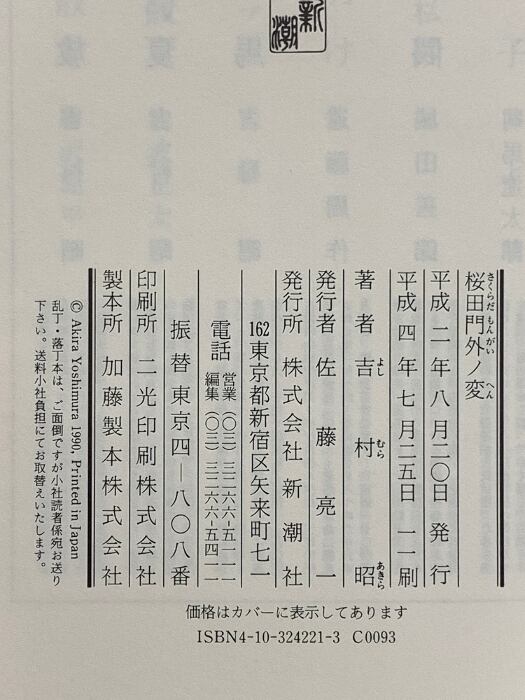 新潮
桜田門外ノ変
さくらだもんがい へん
平成二年八月二〇日 発行
平成四年七月二五日 一一刷
著者 吉村昭
よしむら あきら
発行者 佐藤亮一
発行所 株式会社新潮社
162東京都新宿区矢来町七一
電話 営業(〇三)三二六六-五一一一
編集(〇三)三二六六-五四一一
振替 東京四―八〇八番
印刷所 二光印刷株式会社
製本所 加藤製本株式会社
© Akira Yoshimura 1990, Printed in Japan
乱丁・落丁本は、ご面倒ですが小社読者係宛お送り
下さい。送料小社負担にてお取替えいたします。
価格はカバーに表示してあります
ISBN4-10-324221-3 C0093